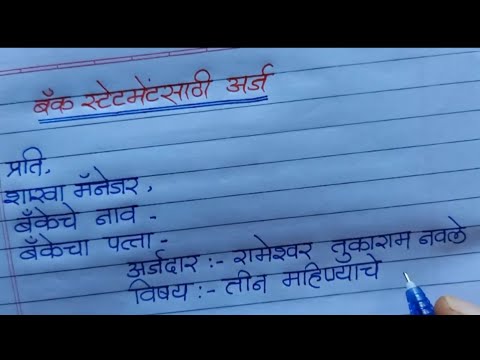 बँक स्टेटमेंटसाठी अर्ज
प्रति,
शाखा मॅनेजर,
बँकेचे नाव -
बँकेचा पत्ता -
अर्जदार :- रामेश्वर तुकाराम नवले
विषय :- तीन महिण्याचे